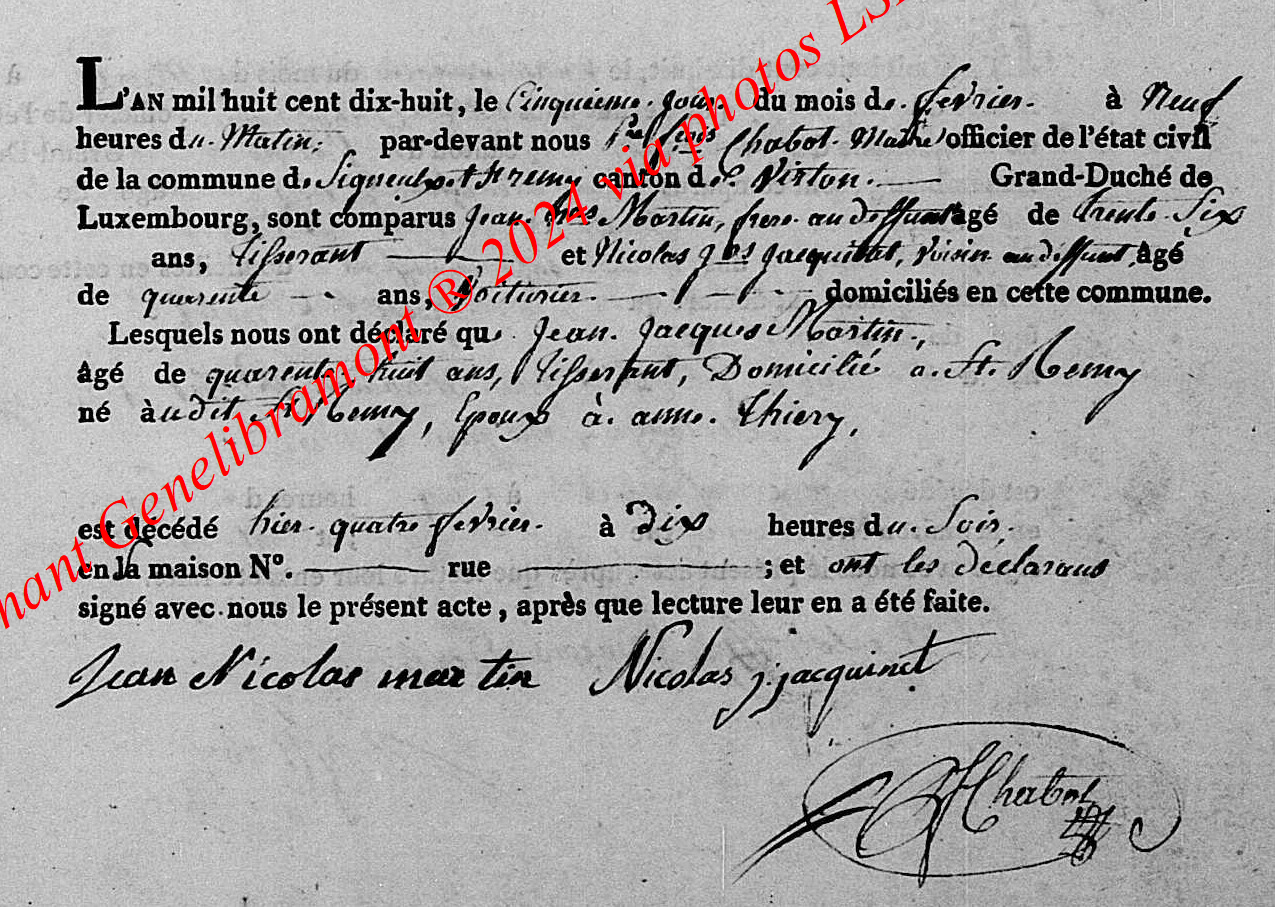 L'AN mil huit cent dix-huit, le Cinquieme jour du mois de fevrier. à Neuf
heures du Matin; par-devant nous Pre Chabot Maire officier de l'état civil
de la commune de Signeulx et St remy canton de Virton. Grand-Duché de
Luxembourg, sont comparus Jean Nas Martin, frere au deffunt âgé de trente Six
ans, tisserant et Nicolas Jacquinet, voisin au deffunt, âgé
de quarente ans, Voiturier. domiciliés en cette commune.
Lesquels nous ont déclaré que Jean Jacques Martin,
âgé de quarente huit ans, tisserant, Domicilié a St. Remy
né audit St Remy, Epoux à anne Thiery,
est décédé hier quatre fevrier. à dix heures du Soir.
en la maison N°. rue ; et ont les déclarans
signé avec nous le présent acte, après que lecture leur en a été faite.
Jean Nicolas martin Nicolas j. jacquinet
Chabot
Genelibramont ® 2024 via photos